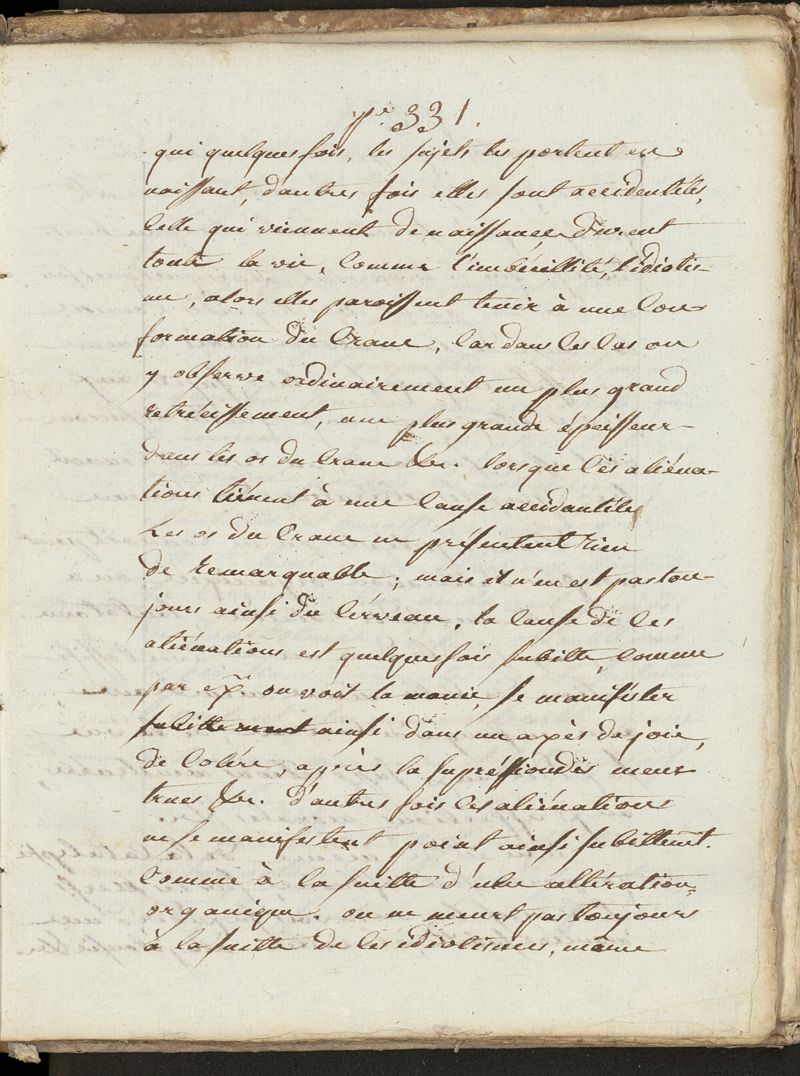 pe. 331.
qui quelques fois, les sujets les portent en
naissant, d'autres fois elles sont accidentéles,
celle qui viennent de naissance durent
toute la vie, comme l'imbécillité, l'idiotis-
me, alors elles paroissent tenir à une con
formation du crane, car dans ces cas on
y observe ordinairement un plus grand
retrécissement, une plus grande épaisseur-
dans les os du crane &c. lorsque ces aliéna-
tions tiénent à une cause accidantéle
Les os du crane ne présentent rien
de remarquable; mais il n'en est pas tou-
jours ainsi du cérveau, la cause de ces
aliénations est quelques fois subitte, comme
par ex. on voit la manie, se manifester
subittement ainsi dans un axès de joie,
de colére, après la supression des mens
trues &c. d'autres fois ces aliénations
ne se manifestent point ainsi subittemt.
comme à la suitte d'une alltération
organique. on ne meurt pas toujours
à la suitte de ces idiotismes, même